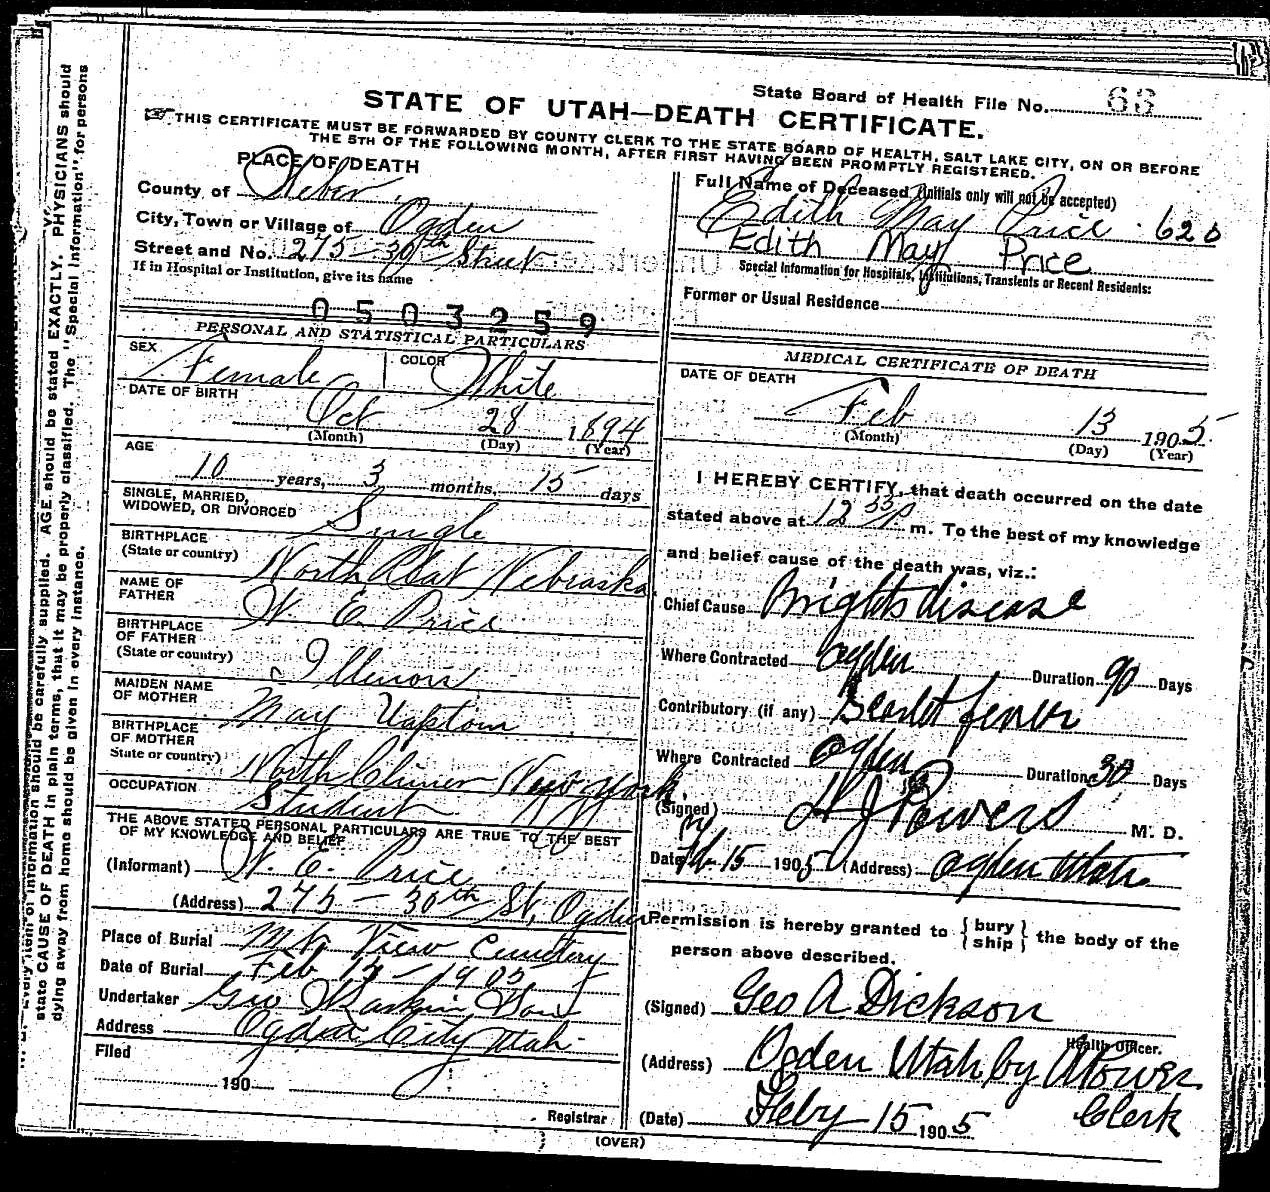 State Board of Health File No. 63
STATE OF UTAH—DEATH CERTIFICATE.
THIS CERTIFICATE MUST BE FORWARDED BY COUNTY CLERK TO THE STATE BOARD OF HEALTH, SALT LAKE CITY, ON OR BEFORE
THE 5TH OF THE FOLLOWING MONTH, AFTER FIRST HAVING BEEN PROMPTLY REGISTERED.
PLACE OF DEATH
County of Weber
City, Town or Village of Ogden
Street and No. 275 - 30th Street
If in Hospital or Institution, give its name
0503259
PERSONAL AND STATISTICAL PARTICULARS
SEX Female COLOR White
DATE OF BIRTH
Oct 28 1894
(Month) (Day) (Year)
AGE
10 years, 3 months, 15 days
SINGLE, MARRIED,
WIDOWED, OR DIVORCED Single
BIRTHPLACE
(State or country) North Plat Nebraska
NAME OF
FATHER W. E. Price
BIRTHPLACE
OF FATHER
(State or country) Illinois
MAIDEN NAME
OF MOTHER May
BIRTHPLACE
OF MOTHER
State or country) North New York
OCCUPATION Student
THE ABOVE STATED PERSONAL PARTICULARS ARE TRUE TO THE BEST
OF MY KNOWLEDGE AND BELIEF
(Informant) W. E. Price
(Address) 275 - 30th St, Ogden
Place of Burial Mtn View Cemetery
Date of Burial Feb 1905
Undertaker Geo
Address Ogden City Utah
Filed
190
Registrar
Full Name of Deceased (Initials only will not be accepted)
Edith May Price 620
Edith May Price
Special Information for Hospitals, Institutions, Transients or Recent Residents:
Former or Usual Residence
MEDICAL CERTIFICATE OF DEATH
DATE OF DEATH
Feb 13 1905
(Month) (Day) (Year)
I HEREBY CERTIFY, that death occurred on the date
stated above at 12 55 P m. To the best of my knowledge
and belief cause of the death was, viz.:
Chief Cause Brights disease
Where Contracted Ogden Duration 90 Days
Contributory (if any) Scarlet fever
Where Contracted Ogden Duration 30 Days
(Signed) H J Powers M. D.
Date Feb 15 1905 (Address) Ogden Utah
Permission is hereby granted to { bury ship } the body of the
person above described.
(Signed) Geo A Dickson
Health Officer.
(Address) Ogden Utah by
(Date) Feby 15 1905 Clerk
(OVER)
state CAUSE OF DEATH in plain terms, that it may be properly classified. The "Special Information" for persons
dying away from home should be given in every instance.
information should be carefully supplied. AGE should be stated EXACTLY. PHYSICIANS should